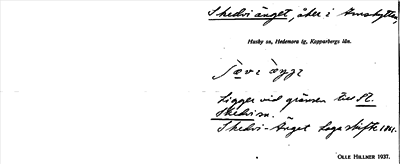 Skedvi änget, åker i Amshyttan,
Husby sn, Hedemora tg, Kopparbergs län.
Ligger vid gränsen till St.
Skedvi sn.
Skedvi-Änget Laga skifte 1841.
OLLE HILLNER 1937.